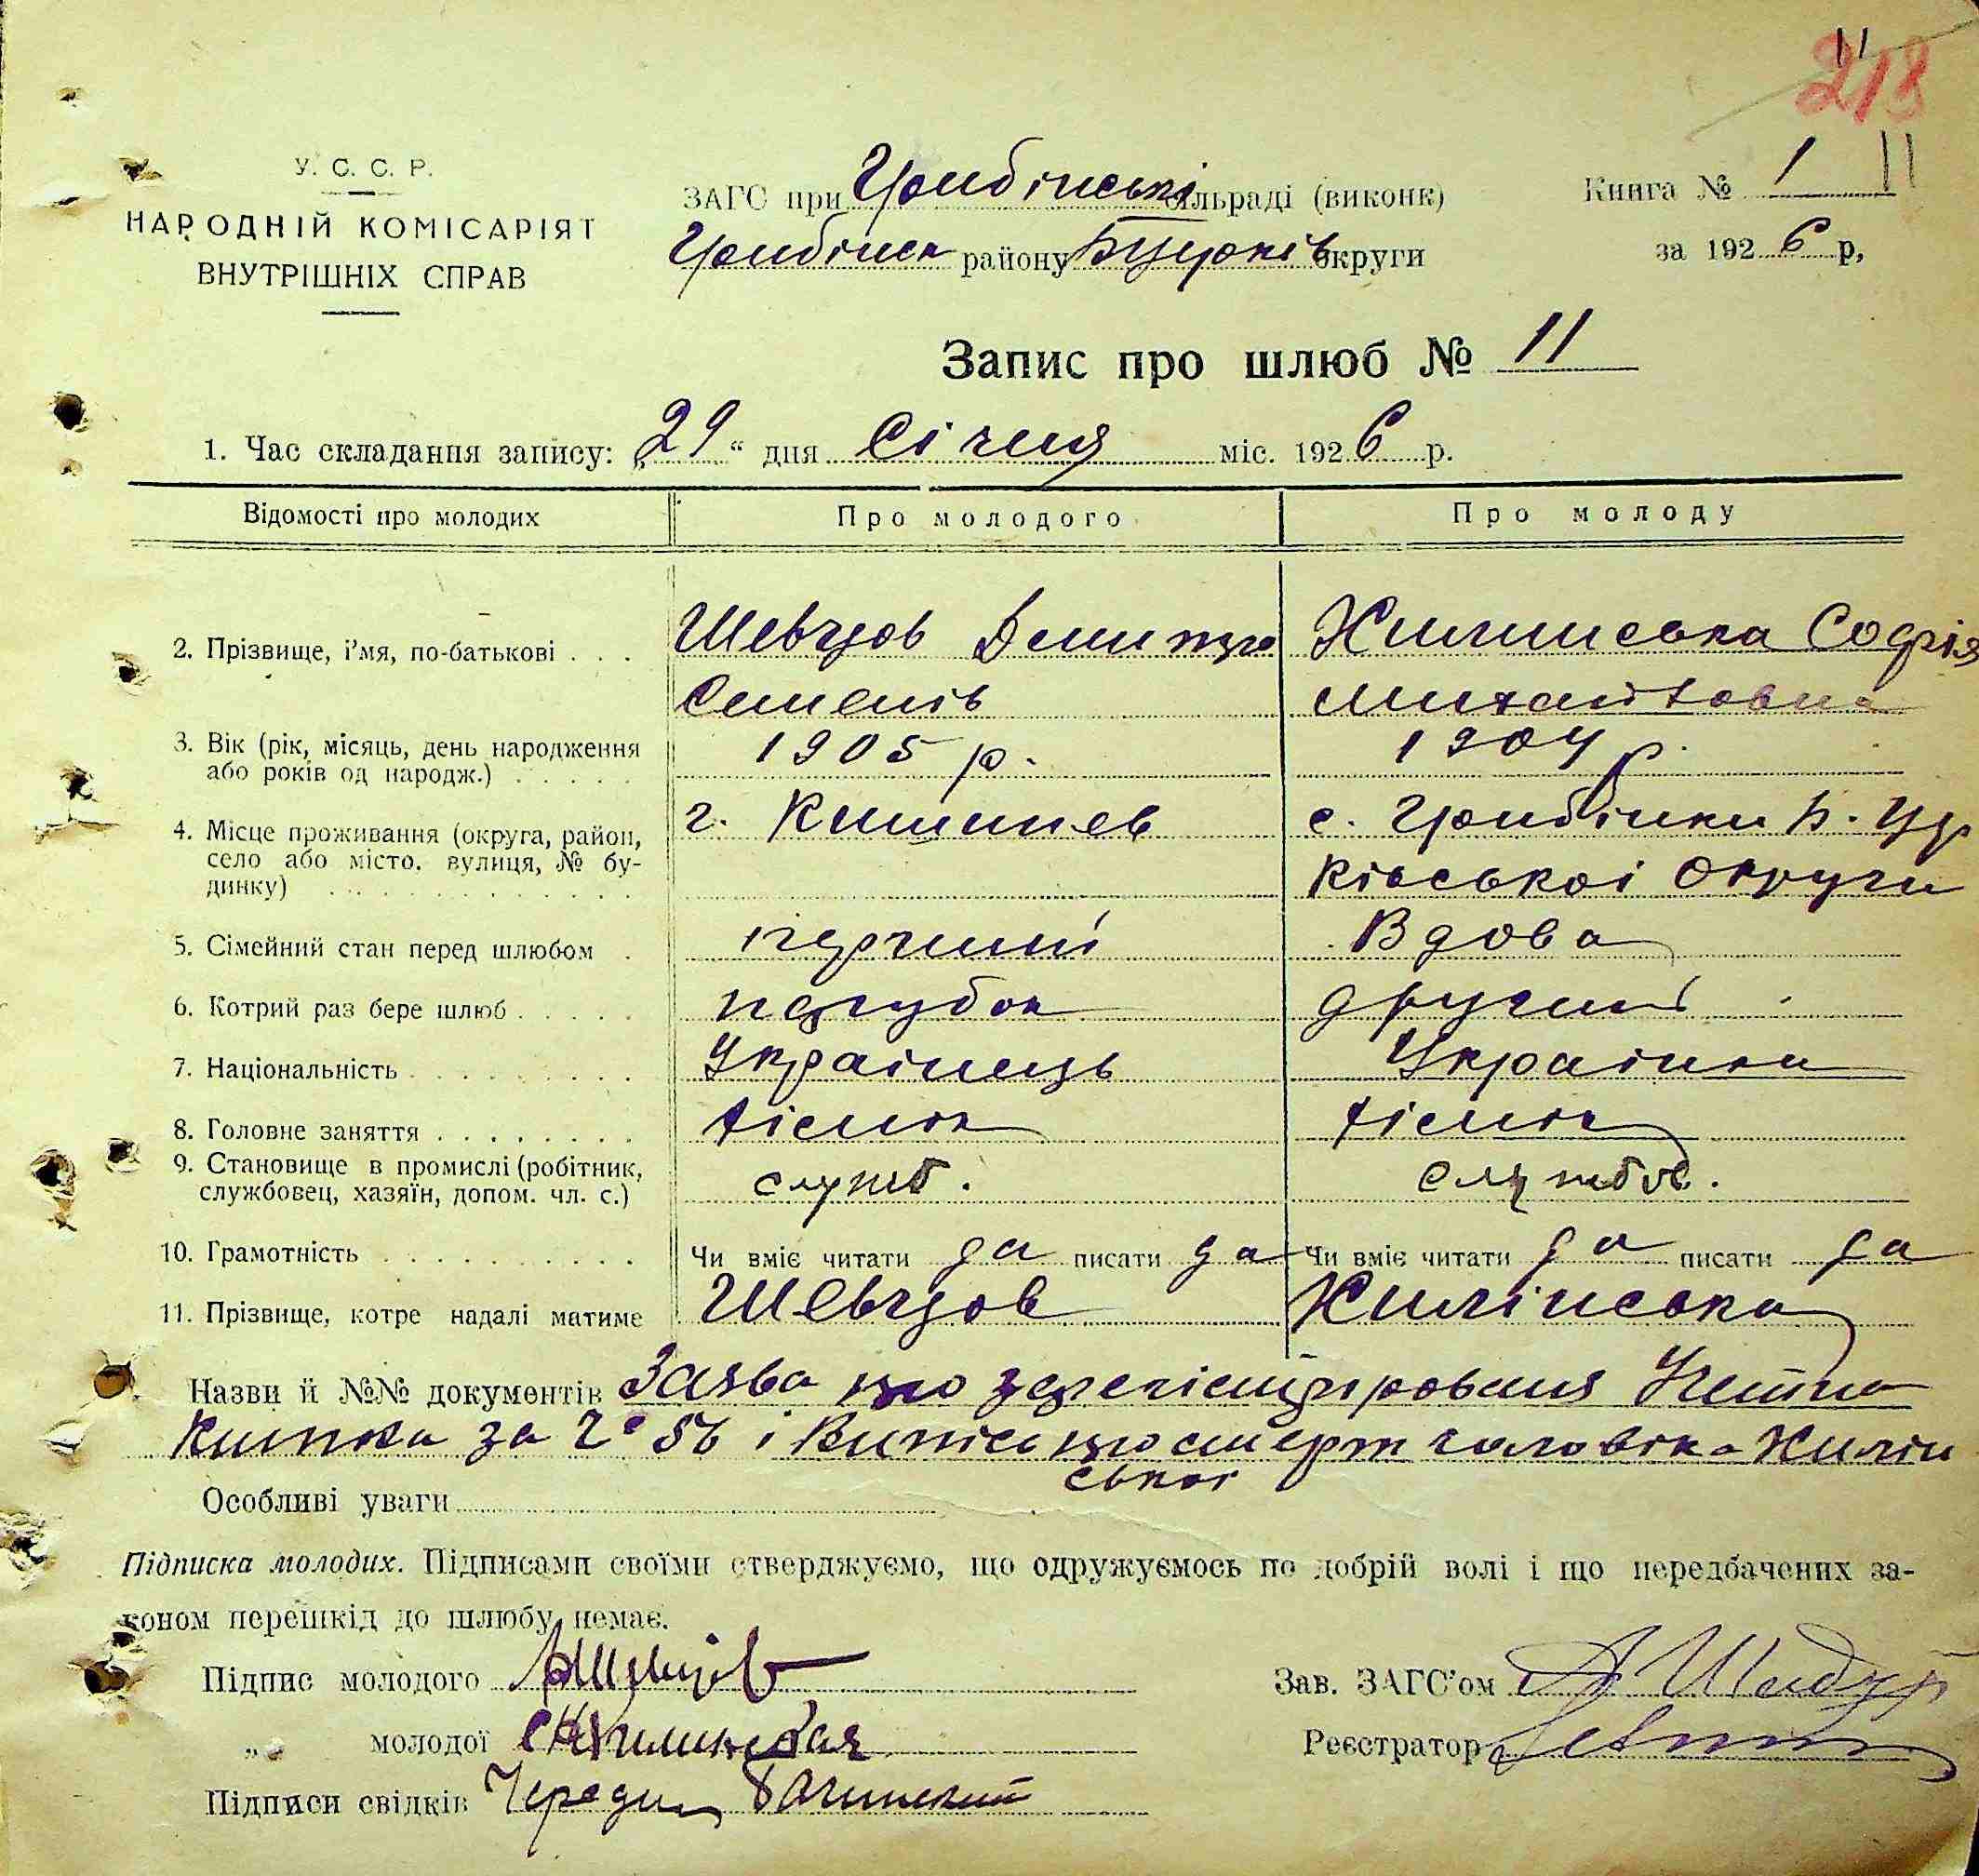 11
218
У. С. С. Р.
НАРОДНІЙ КОМІСАРІЯТ
ВНУТРІШНІХ СПРАВ
ЗАГС при Гребінській сільраді (виконк)
Гребінськ району Б Церків округи
Книга № 1 11
за 1926 р,
Запис про шлюб № 11
1. Час складання запису: „29“ дня Січня міс. 1926 р.
Відомості про молодих
Про молодого
Про молоду
2. Прізвище, і'мя, по-батькові . . .
Шевцов Дмитро
Семенів
Жилинська Софія
Михайловна
3. Вік (рік, місяць, день народження
або років од народж.) . . . . .
1905 р.
1904 р.
4. Місце проживання (округа, район,
село або місто, вулиця, № бу-
динку) . . . . . . . . . . . .
г. Кишинев
с. Гребінки Б. Цер
ківської Округи
5. Сімейний стан перед шлюбом .
перший
Вдова
6. Котрий раз бере шлюб . . . . .
парубок
другий
7. Національність . . . . . . . . .
Українець
Українка
8. Головне заняття . . . . . . . .
9. Становище в промислі (робітник,
службовец, хазяїн, допом. чл. с.)
служб.
службов.
10. Грамотність . . . . . . . . . .
Чи вміє читати да писати да
Чи вміє читати да писати да
11. Прізвище, котре надалі матиме
Шевцов
Жилінська
Назви й №№ документів Заява про
Книжка за № 56 і Витіс про смерт чоловіка Жилін
ської
Особливі уваги
Підписка молодих. Підписами своїми стверджуємо, що одружуємось по добрій волі і що передбачених за-
коном перешкід до шлюбу немає.
Підпис молодого Шевцов
„ молодої СЖилинская
Підписи свідків
Зав. ЗАГС'ом
Реєстратор